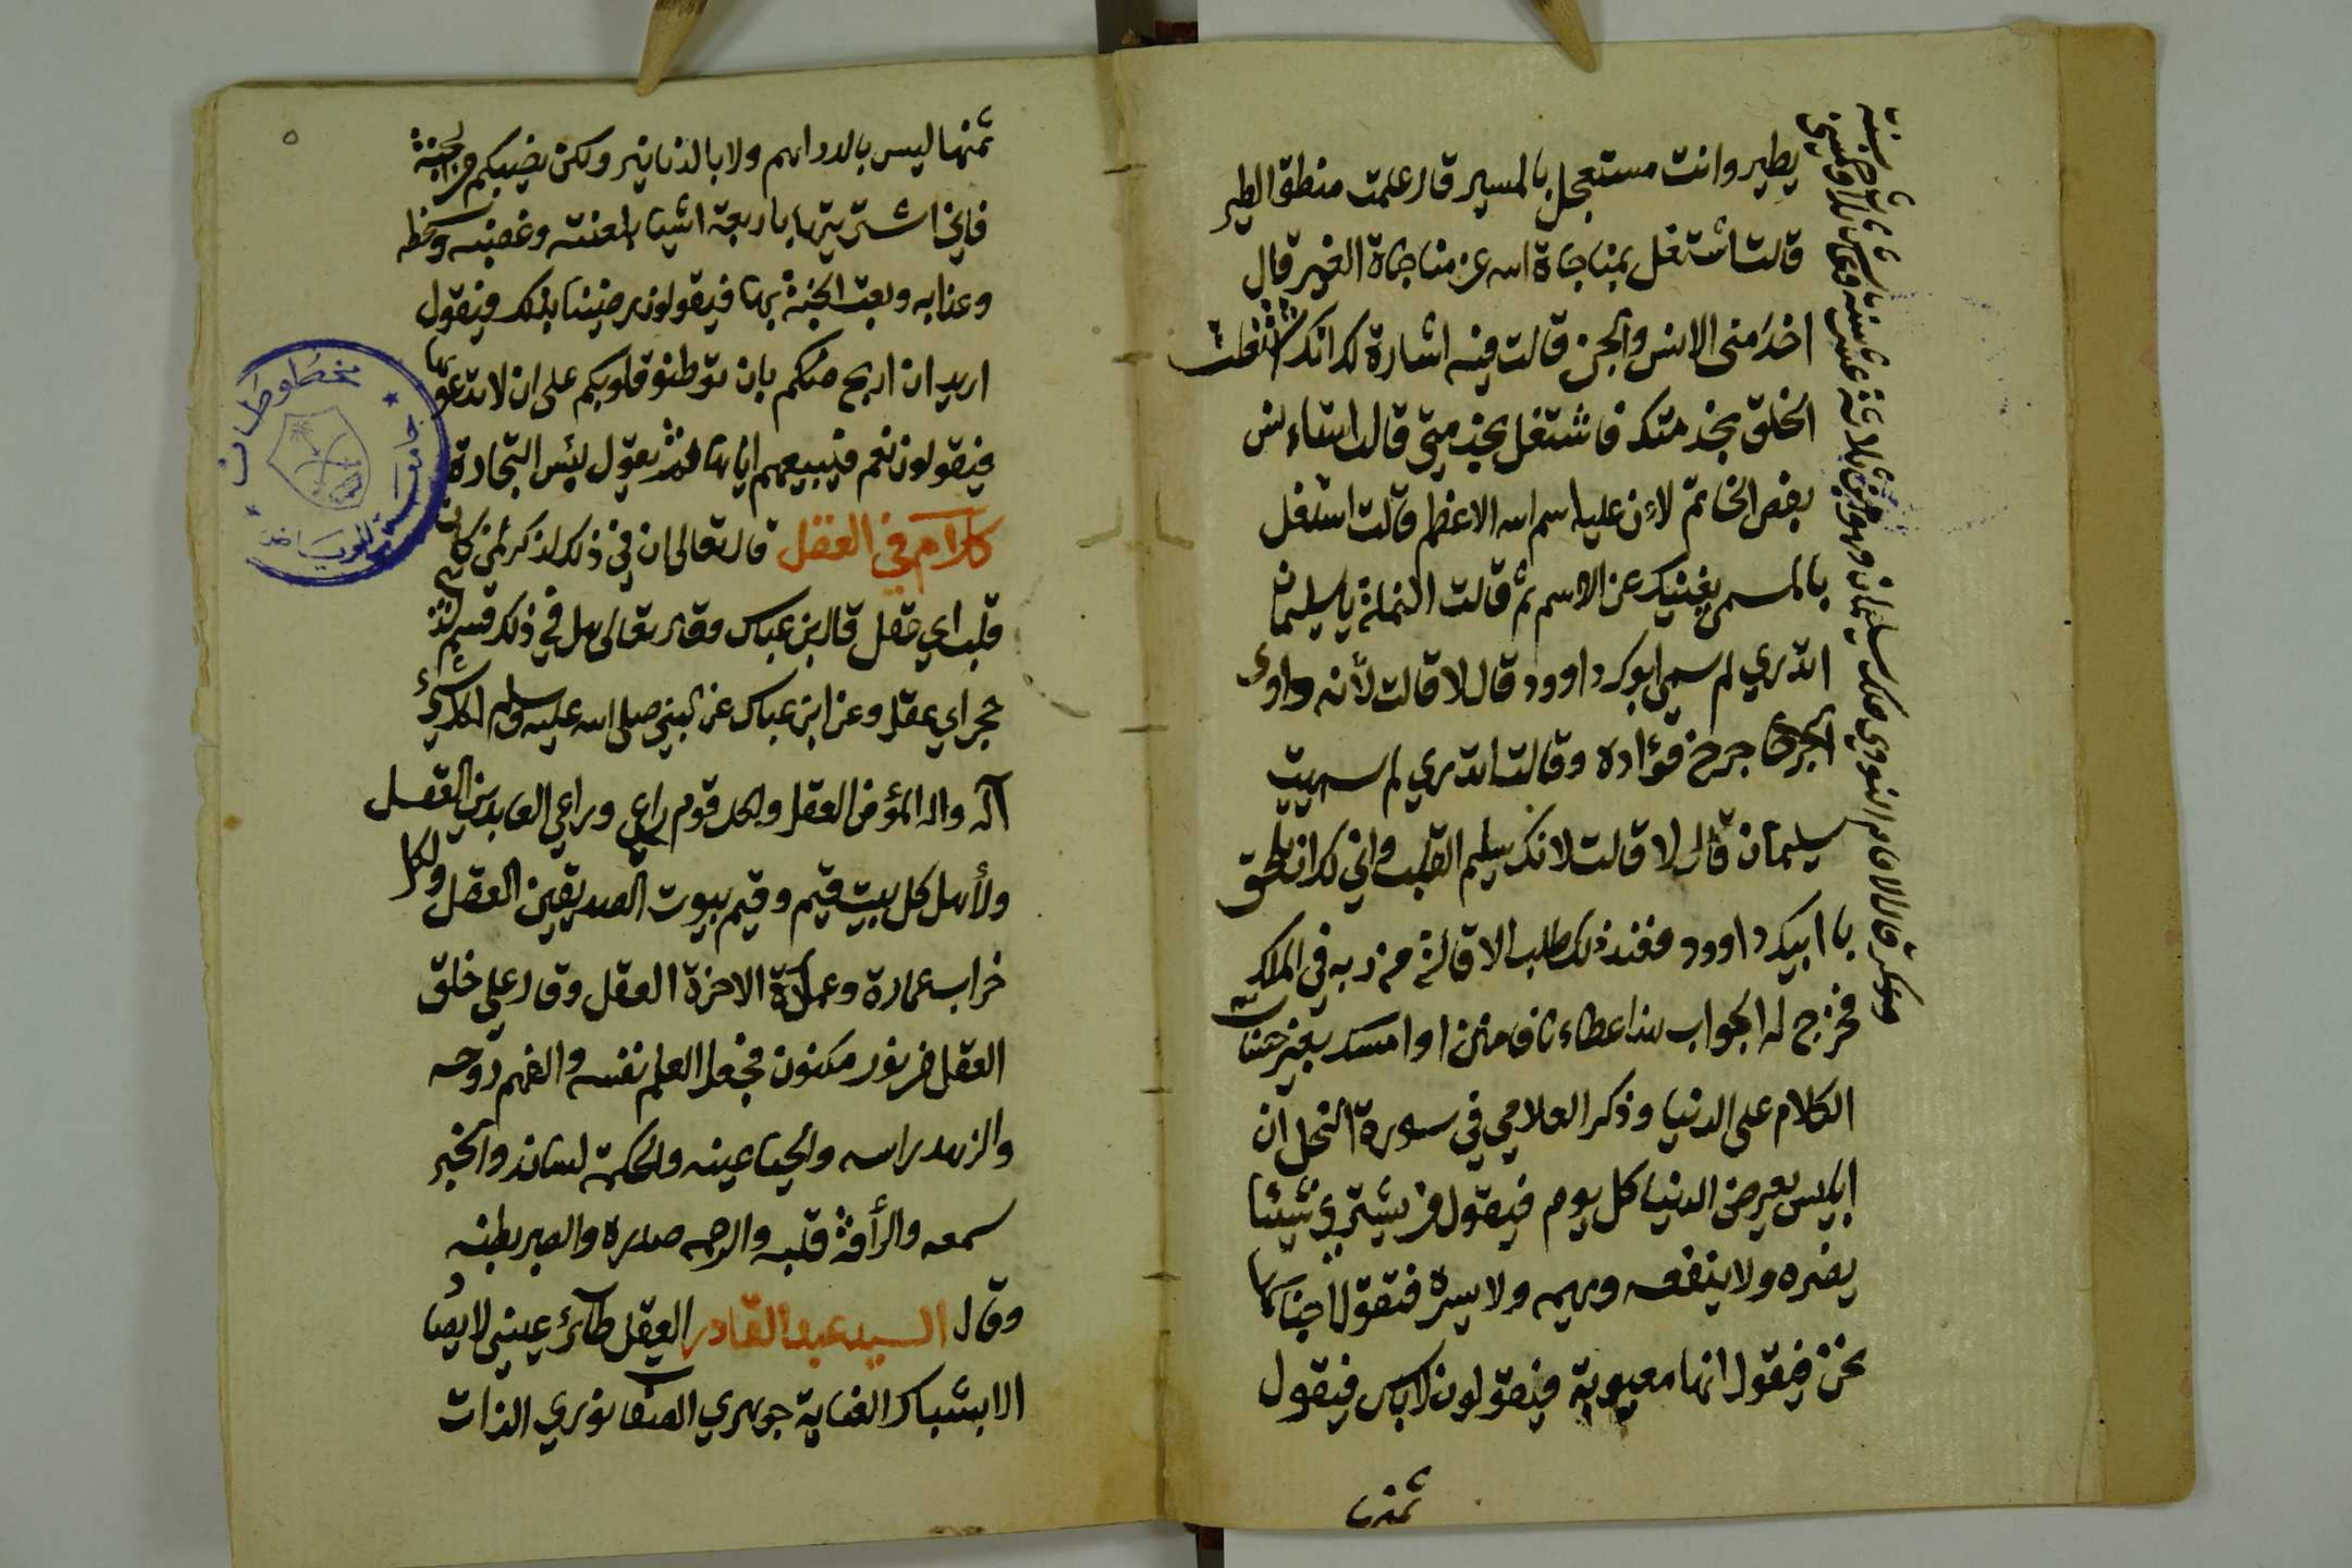 يطير وانت مستعجل بالمسير قال علمت منطق الطير
قالت اشتغل بمناجاة الله عن مناجاة الغير قال
اخدمنى الانس والجن قالت فيه اشارة لك انك اشتغلت
الخلق بخدمتك فاشتغل بخدمتي قال استاءنس
بفص الخاتم لاءن عليه اسم الله الاعظم قالت اشتغل
بالمسمى يغنيك عن الاسم ثم قالت النملة يا سليمان
اتدري لم سمي ابوك داوود قال لا قالت لأنه داوى
الجرح جرح فؤاده وقالت اتدري لم سميت
سليمان قال لا قالت لانك سليم القلب واني لك ان تلحق
با ابيك داوود فعند ذلك طلب الاقالة من ربه في الملك
فخرج له الجواب هذا عطاءنا فامنن او امسك بغير حساب
الكلام على الدنيا وذكر العلامي في سورة النحل ان
ابليس يعرض الدنيا كل يوم فيقول من يشتري شيئا
يضره ولا ينفعه ويهمه ولا يسره فتقول اصحابها
نحن فيقول انها معيوبة فيقولون لاباس فيقول
ثمنها
قال الامام النووي ملك سليمان وهو ابن ثلاثة عشر سنة
ثمنها ليس بالدراهم ولا بالدنانير ولكن نصيبكم من الجنة
فاني اشتريتها باربعة اشيا بلعنته وغضبه وسخطه
وعذابه وبعت الجنة بها فيقولون رضينا بذلك فيقول
اريد ان اربح منكم بان توطنو قلوبكم على ان لا تدعوها
فيقولون نعم فيبيعهم اياها ثم يقول بئس التجارة
كلام في العقل قال تعالى ان في ذلك لذكرى لمن كان له
قلب اي عقل قال ابن عباس وقال تعالى هل في ذلك قسم لذي
حجر اي عقل وعن ابن عباس عن النبي صلى الله عليه وسلم لكل شيء
آلة والة المؤمن العقل ولكل قوم راعي وراعي العابدين العقل
ولأهل كل بيت قيم وقيم بيوت الصديقين العقل ولكل
خراب عمارة وعمارة الاخرة العقل وقال علي خلق
العقل من نور مكنون فجعل العلم نفسه والفهم روحه
والزهد راسه والحيا عينه والحكمة لسانه والخير
سمعه والرأفة قلبه والرحمه صدره والصبر بطنه
وقال السيد عبد القادر العقل طائر عيني لا يصاد
الا بشباك العناية جوهري الصفا نوري الذات
مخطوطات
جامعة الرياض
٥